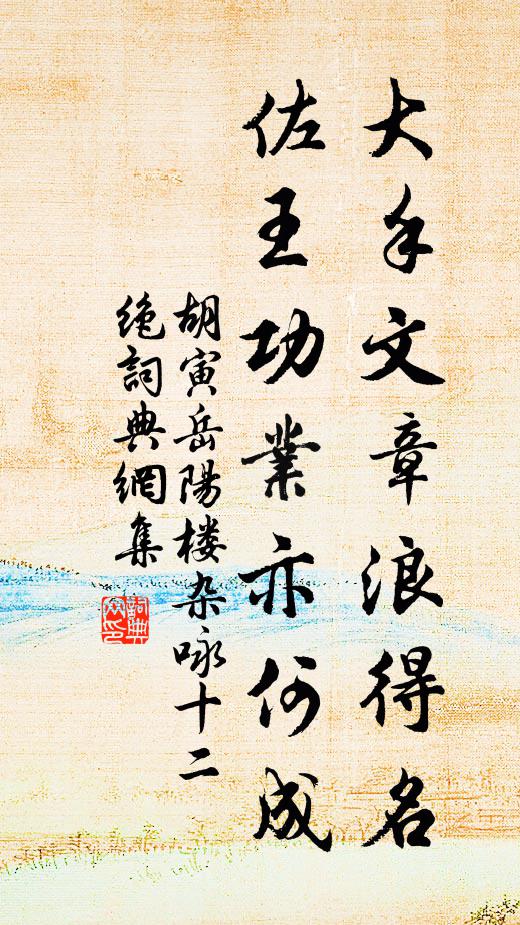 大手文章浪得名
佐王功業亦何成
胡寅岳陽楼杂咏十二
绝詞典網集